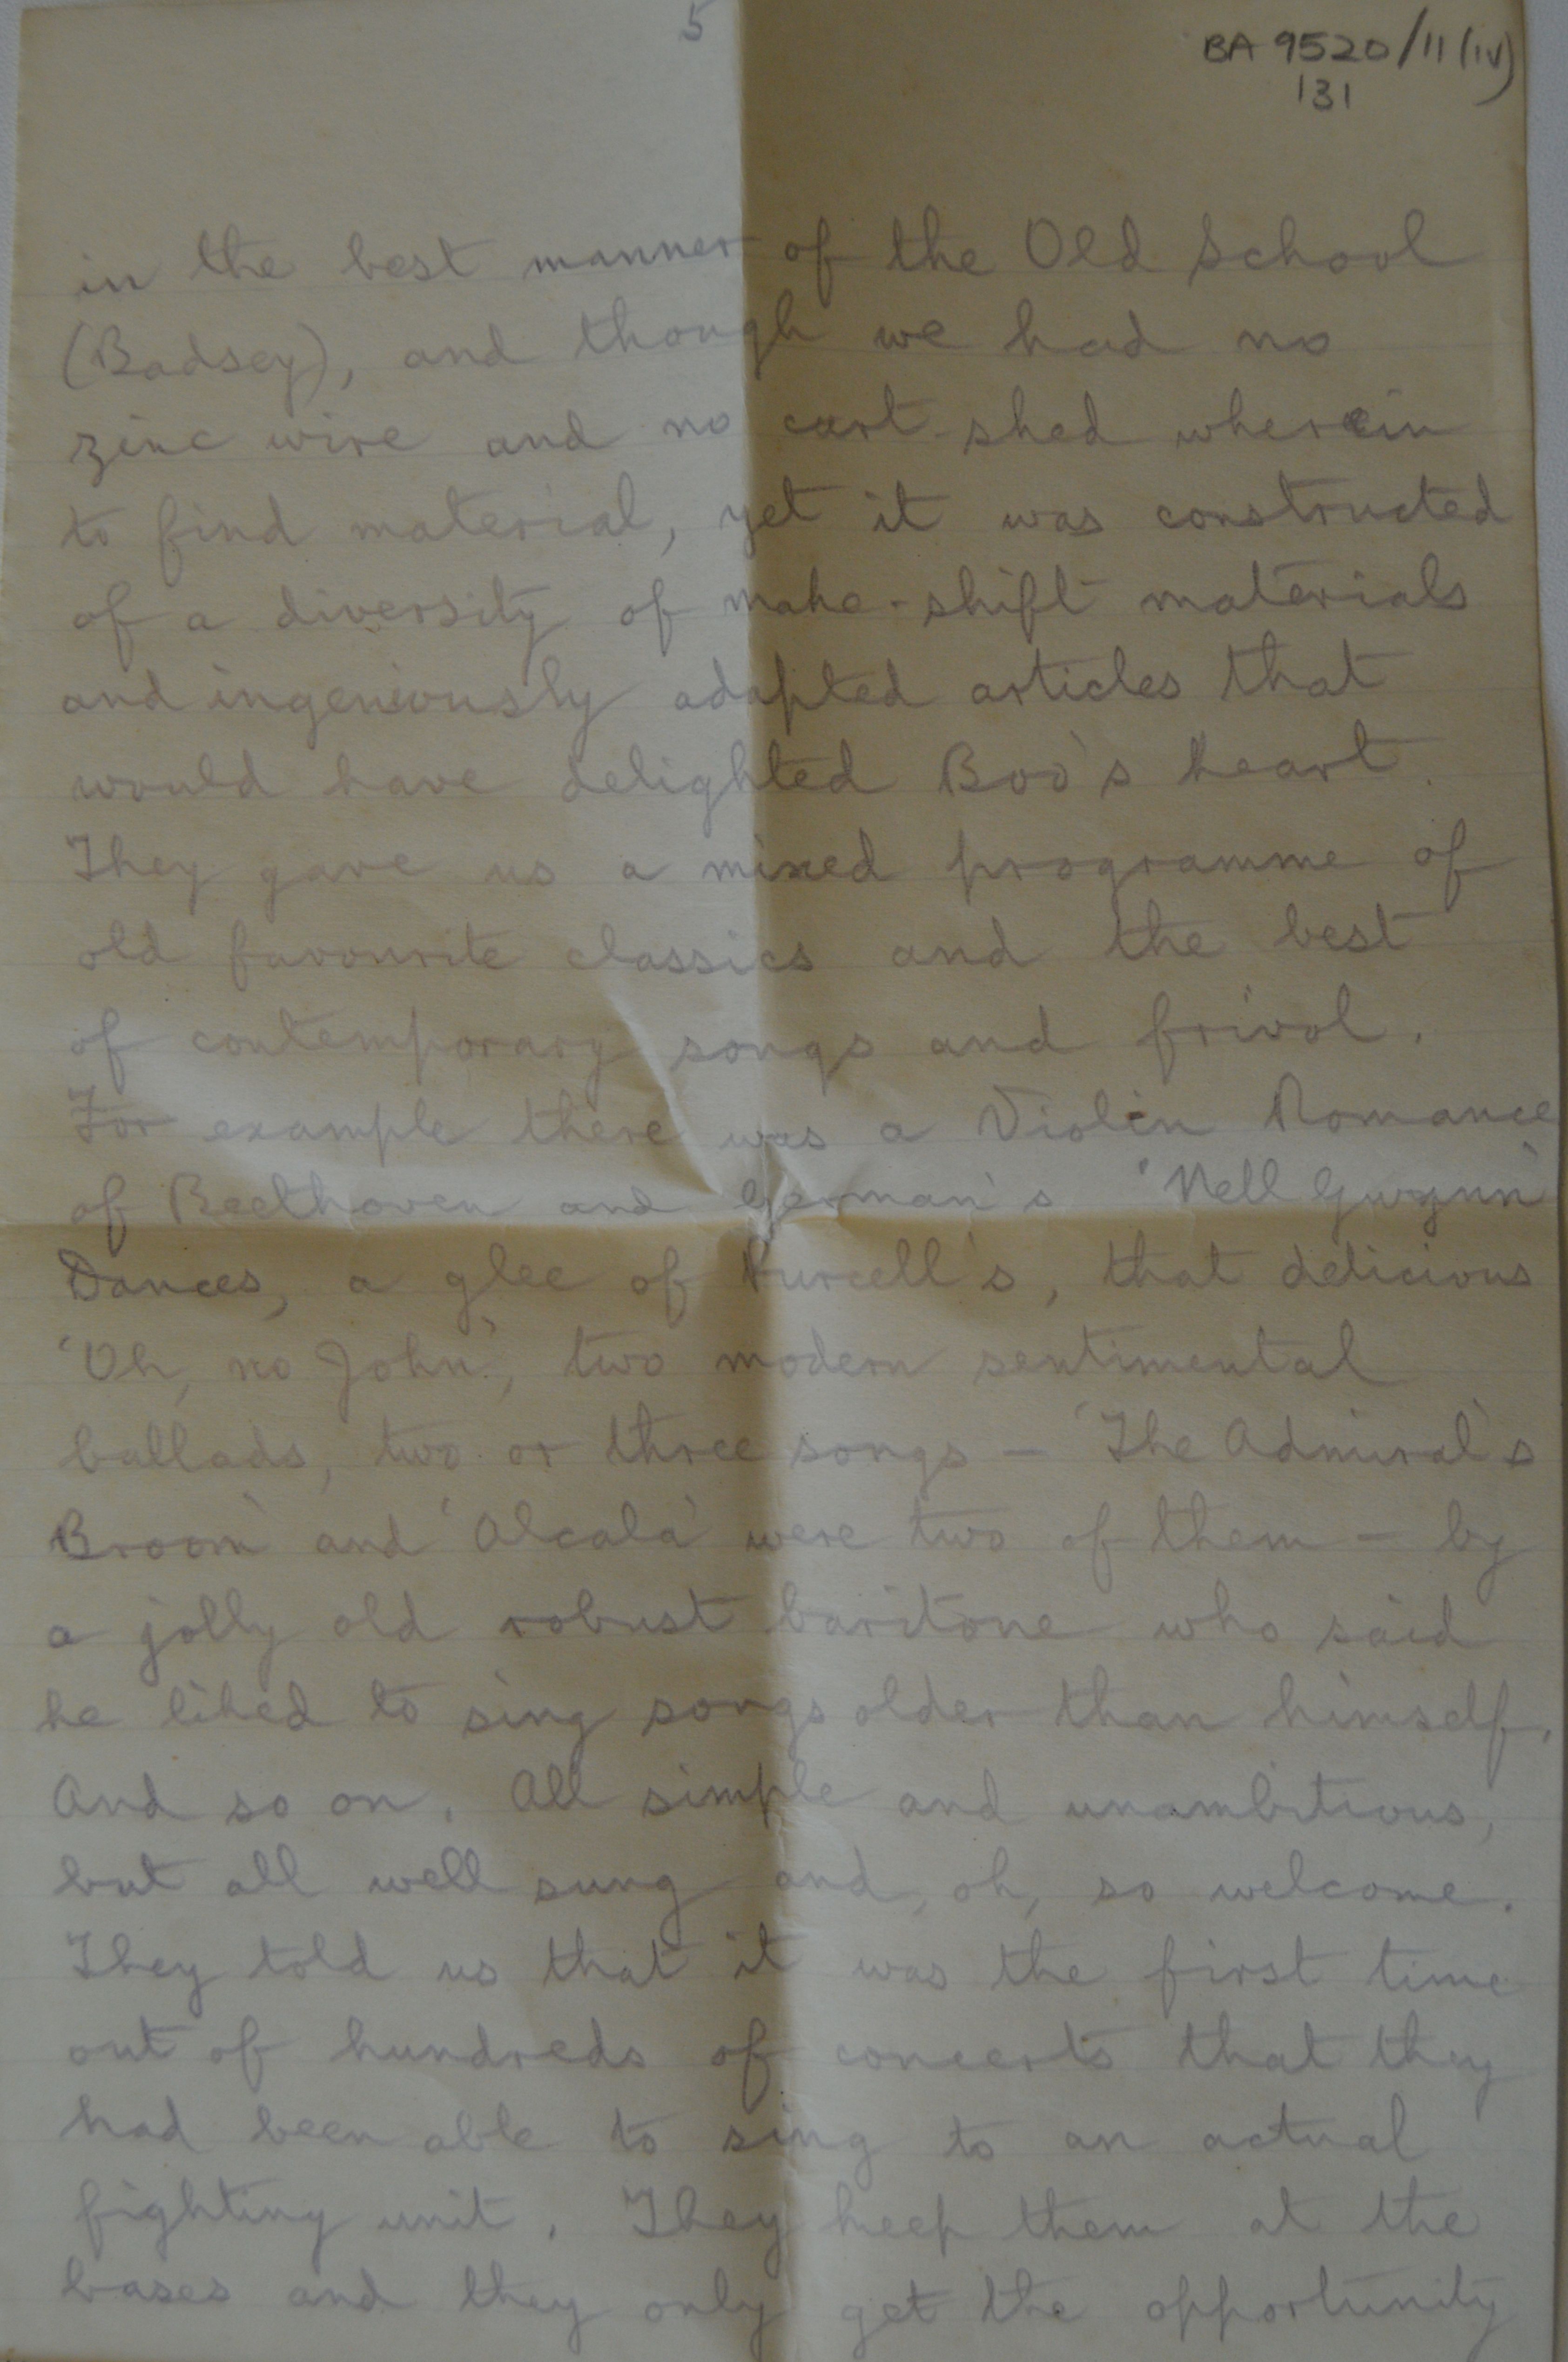 5
BA 9520/11(iv)
131
in the best manner of the Old School
(Badsey), and though we had no
zinc wire and no cart-shed wherein
to find material, yet it was constructed
of a diversity of make-shift materials
and ingeniously adapted articles that
would have delighted Boo's heart.
They gave us a mixed programme of
old favourite classics and the best
of contemporary songs and frivol.
For example there was a Violin Romance
of Beethoven and German's 'Nell Gwynn'
Dances, a glee of Purcell's, that delicious
'Oh, no John', two modern sentimental
ballads, two or three songs – 'The Admiral's
Broom' and 'Alcala' were two of them – by
a jolly old robust baritone who said
he liked to sing songs older than himself.
And so on. All simple and unambitious,
but all well sung and, oh, so welcome.
They told us that it was the first time
out of hundreds of concerts that they
had been able to sing to an actual
fighting unit. They keep them at the
bases and they only get the opportunity